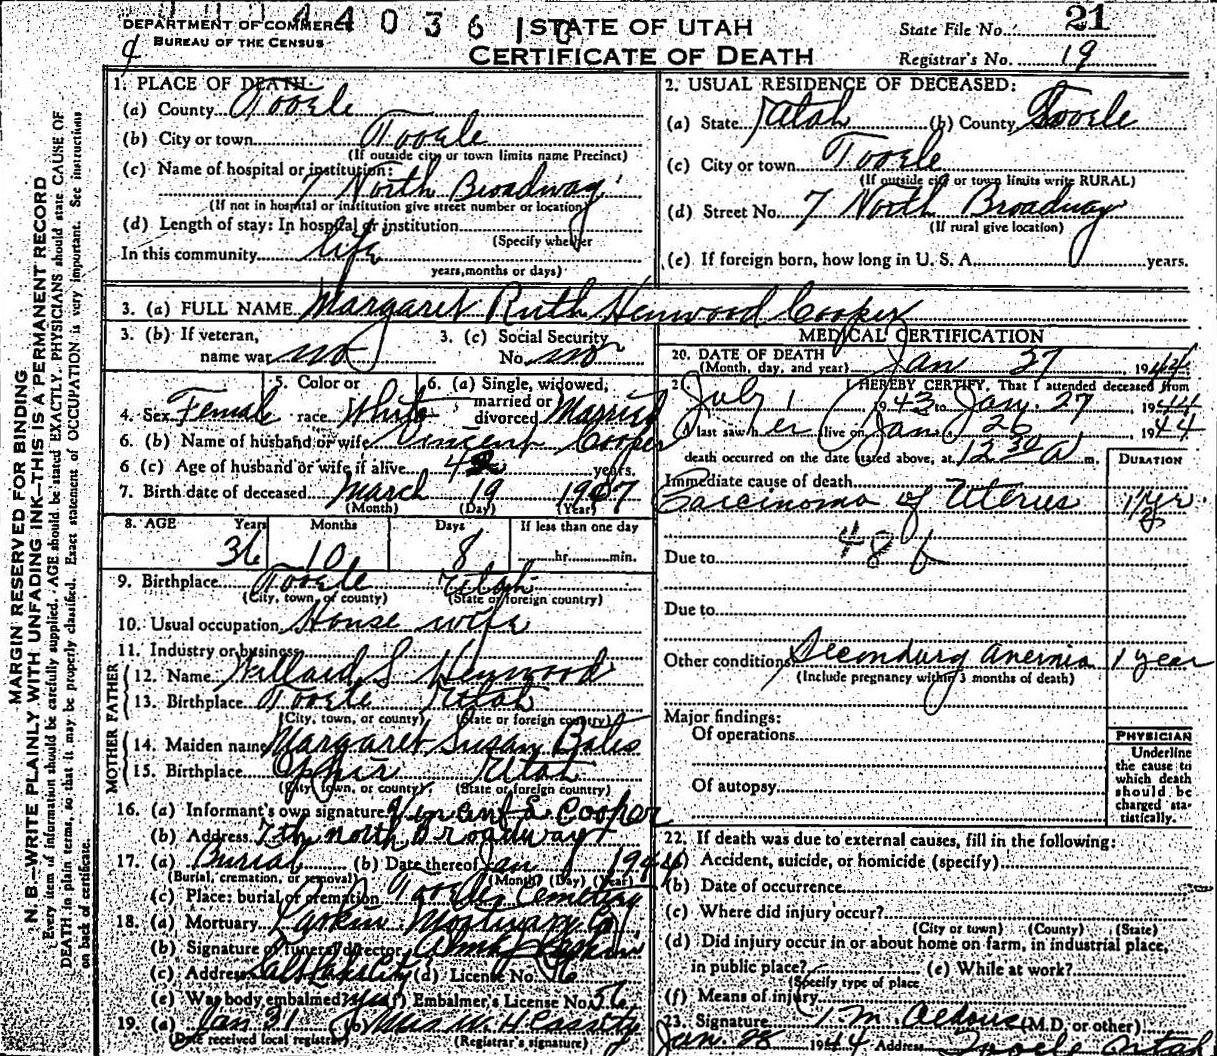 DEPARTMENT OF COMMERCE
BUREAU OF THE CENSUS
4 4 0 3 6 1 0
STATE OF UTAH
CERTIFICATE OF DEATH
State File No. 21
Registrar's No. 19
MARGIN RESERVED FOR BINDING
N. B.—WRITE PLAINLY WITH UNFADING INK—THIS IS A PERMANENT RECORD
Every item of information should be carefully supplied. AGE should be stated EXACTLY. PHYSICIANS should state CAUSE OF
DEATH in plain terms, so that it may be properly classified. Exact statement of OCCUPATION is very important. See instructions
on back of certificate.
1. PLACE OF DEATH
(a) County Tooele
(b) City or town Tooele
(If outside city or town limits name Precinct)
(c) Name of hospital or institution:
7 North Broadway
(If not in hospital or institution give street number or location)
(d) Length of stay: In hospital or institution
(Specify whether
In this community life
years, months or days)
2. USUAL RESIDENCE OF DECEASED:
(a) State Utah (b) County Tooele
(c) City or town Tooele
(If outside city or town limits write RURAL)
(d) Street No. 7 North Broadway
(If rural give location)
(e) If foreign born, how long in U. S. A. years.
3. (a) FULL NAME Margaret Ruth Henwood Cooper
3. (b) If veteran, name war no
3. (c) Social Security No. no
4. Sex Female
5. Color or race White
6. (a) Single, widowed, married or divorced Married
6. (b) Name of husband or wife Vincent Cooper
6 (c) Age of husband or wife if alive years.
7. Birth date of deceased March 19 1907
(Month) (Day) (Year)
8. AGE Years Months Days If less than one day
36 10 8 hr. min.
9. Birthplace Tooele Utah
(City, town, or county) (State or foreign country)
10. Usual occupation House wife
11. Industry or business
FATHER
12. Name Willard S Henwood
13. Birthplace Tooele Utah
(City, town, or county) (State or foreign country)
MOTHER
14. Maiden name Margaret Susan Bates
15. Birthplace Ophir Utah
(City, town, or county) (State or foreign country)
16. (a) Informant's own signature Vincent L. Cooper
(b) Address 7th north Broadway
17. (a) Burial (b) Date thereof Jan 1944
(Burial, cremation, or removal) (Month) (Day) (Year)
(c) Place: burial or cremation Tooele Cemetery
18. (a) Mortuary Larkin Mortuary Co
(b) Signature of funeral director Alma Larkin
(c) Address Salt Lake City (d) License No. 76
(e) Was body embalmed? yes (f) Embalmer's License No. 56
19. (a) Jan 31 (b) Mrs W. H. Cassity
(Date received local registrar) (Registrar's signature)
MEDICAL CERTIFICATION
20. DATE OF DEATH Jan 27, 1944
(Month, day, and year)
21. I HEREBY CERTIFY, That I attended deceased from
July 1 1943 to Jan. 27 1944
I last saw her alive on Jan. 26, 1944
death occurred on the date stated above, at 12 30 A m.
DURATION
Immediate cause of death
Carcinoma of Uterus
48 b
Due to
Due to
Other conditions Secondary anemia 1 year
(Include pregnancy within 3 months of death)
Major findings:
Of operations
Of autopsy
PHYSICIAN
Underline
the cause to
which death
should be
charged sta-
tistically.
22. If death was due to external causes, fill in the following:
(a) Accident, suicide, or homicide (specify)
(b) Date of occurrence
(c) Where did injury occur?
(City or town) (County) (State)
(d) Did injury occur in or about home on farm, in industrial place,
in public place? (e) While at work?
(Specify type of place
(f) Means of injury
23. Signature T. M. Aldous (M.D. or other)
Jan. 28 1944 Address Tooele Utah